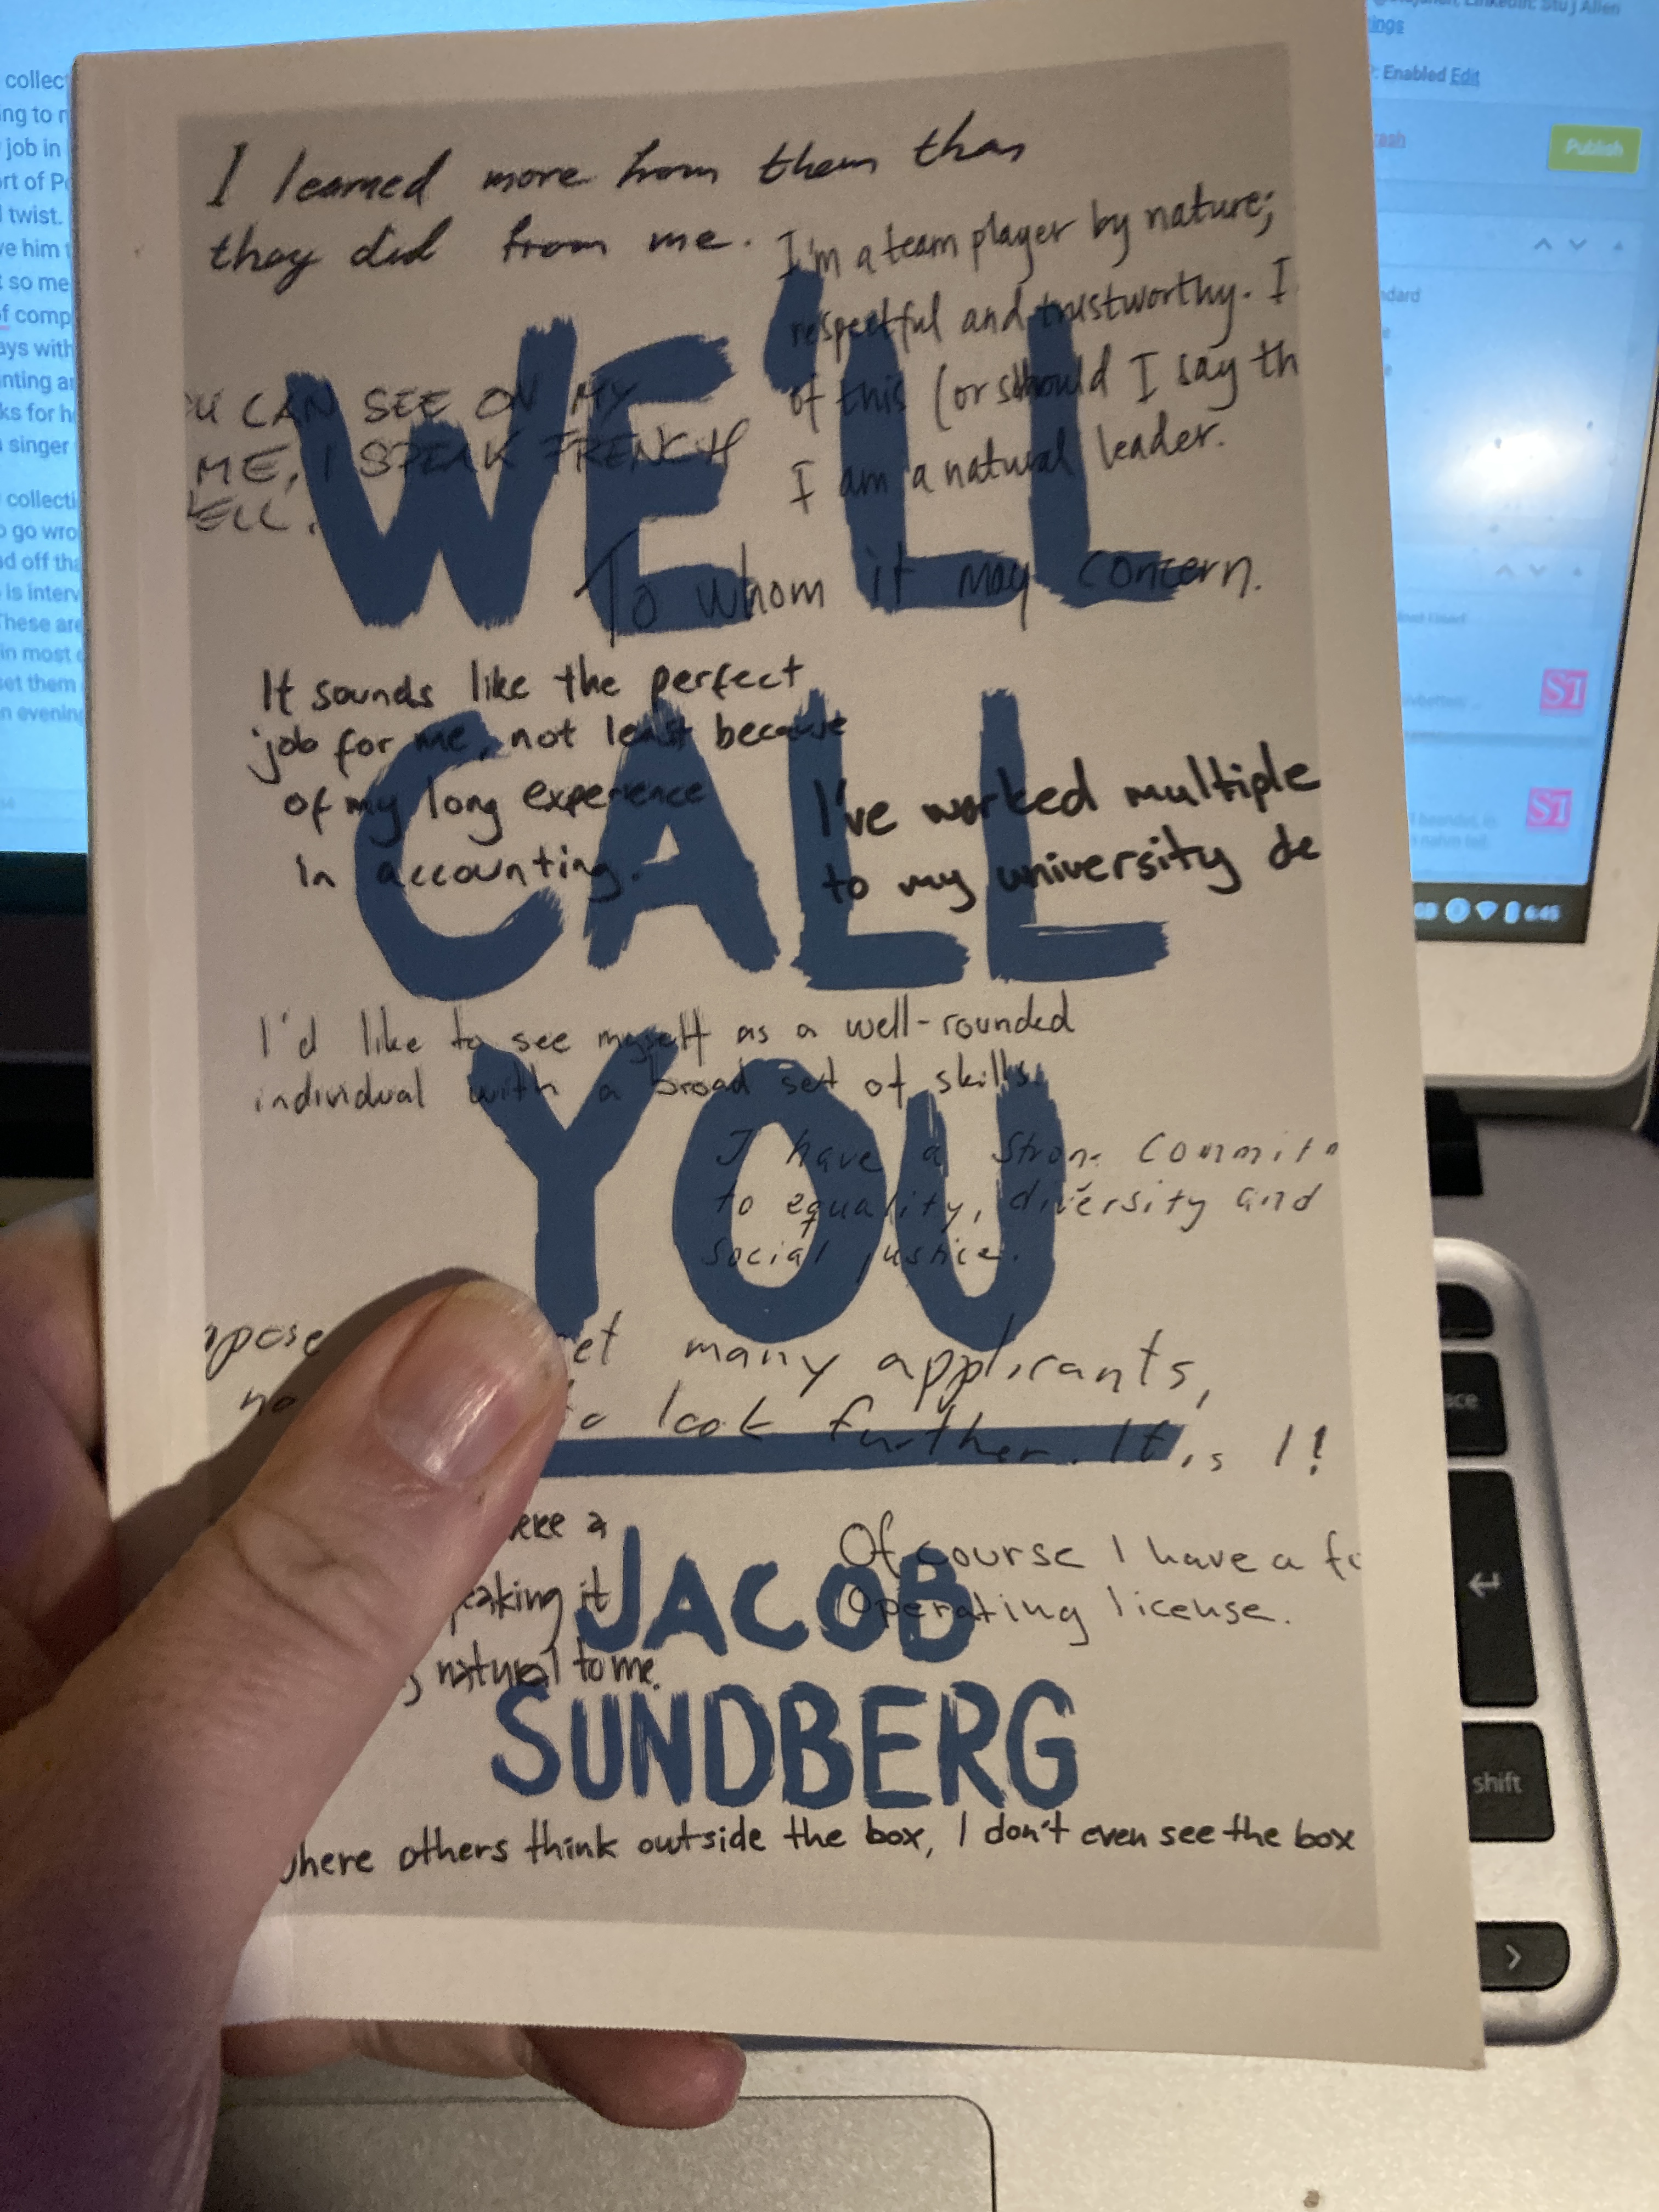 I learned more from them than
they did from me.
I'm a team player by nature;
respectful and trustworthy. I
of this (or should I say th
I am a natural leader.
WE'LL
U CAN SEE ON MY
ME, I SPEAK FRENCH
ELL.
To whom it may concern.
It sounds like the perfect
job for me, not least because
of my long experience
in accounting.
CALL
I've worked multiple
to my university de
I'd like to see myself as a well-rounded
individual with a broad set of skills
YOU
I have a strong commit
to equality, diversity and
social justice.
pose et many applicants,
no to look further. It is I!
ere a
eaking it
g natural to me.
JACOB
Of course I have a fo
operating license.
SUNDBERG
where others think outside the box, I don't even see the box
collect
ing to r
job in
rt of P
twist.
ve him t
t so me
f comp
ays with
nting a
ks for h
singer
collecti
o go wro
d off tha
is interv
These are
in most
set them
n evening
LinkedIn: Stu J Allen
ings
: Enabled Edit
Publish
ndard
ST
ST
6:45
shift